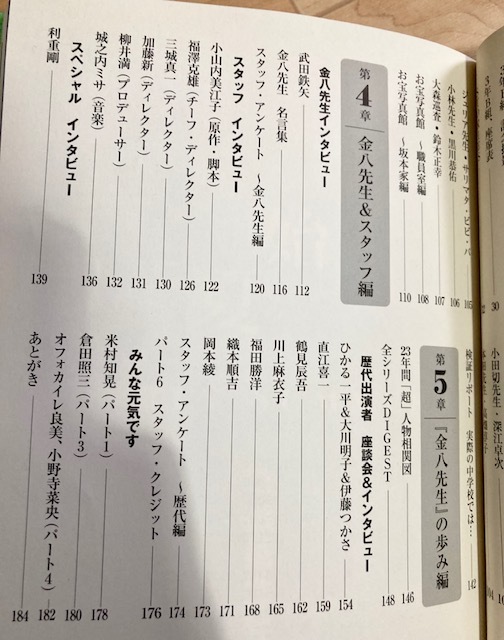 3年B組、座席表
ジュリア先生・サリマタ・ビビ・バ 105
小林先生・黒川恭佑 106
大森巡査・鈴木正幸 107
お宝写真館 〜職員室編 108
お宝写真館 〜坂本家編 110
第4章 金八先生&スタッフ編
金八先生インタビュー
武田鉄矢 112
金八先生 名言集 116
スタッフ・アンケート 〜金八先生編 120
スタッフ インタビュー
小山内美江子(原作・脚本) 122
福澤克雄(チーフ・ディレクター) 126
三城真一(ディレクター) 130
加藤新(ディレクター) 131
柳井満(プロデューサー) 132
城之内ミサ(音楽) 136
スペシャル インタビュー
利重剛 139
30
小田切先生・深江卓次
検証リポート 実際の中学校では… 142
第5章 『金八先生』の歩み編
23年間「超」人物相関図 146
全シリーズDIGEST 148
歴代出演者 座談会&インタビュー
ひかる一平&大川明子&伊藤つかさ 154
直江喜一 159
鶴見辰吾 162
川上麻衣子 165
福田勝洋 168
織本順吉 171
岡本綾 173
スタッフ・アンケート 〜歴代編 174
パート6 スタッフ・クレジット 176
みんな元気です
米村知晃(パート1) 178
倉田照三(パート3) 180
オフォカイレ良美、小野寺菜央(パート4) 182
あとがき 184